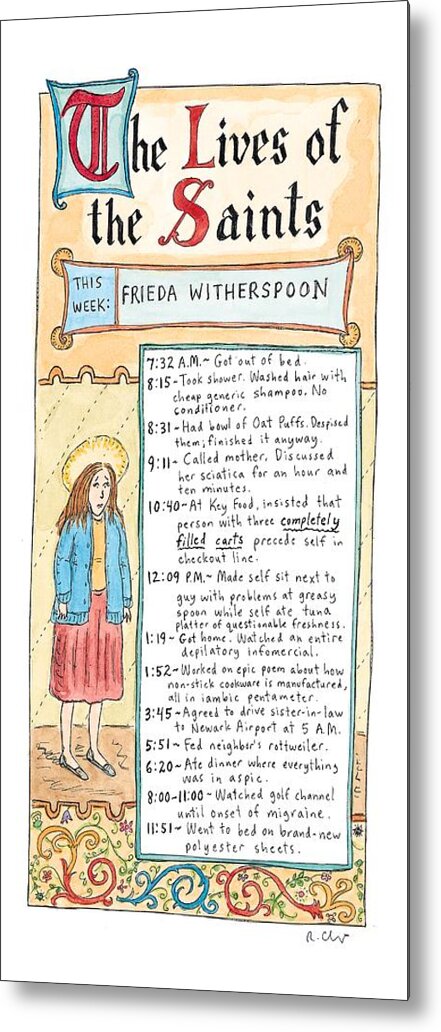 The Lives of
the Saints
THIS
WEEK:
FRIEDA WITHERSPOON
7:32 A.M.~ Got out of bed.
8:15-Took shower. Washed hair with
cheap generic shampoo. No
conditioner.
8:31~Had bowl of Oat Puffs. Despised
them; finished it anyway.
9:11~ Called mother. Discussed
her sciatica for an hour and
ten minutes.
10:40~At Key Food, insisted that
person with three completely
filled carts precede self in
checkout line.
12:09 P.M.~ Made self sit next to
guy with problems at greasy
spoon while self ate tuna
platter of questionable freshness.
1:19~ Got home. Watched an entire
depilatory infomercial.
1:52~Worked on epic poem about how
non-stick cookware is manufactured,
all in iambic pentameter.
3:45~Agreed to drive sister-in-law
to Newark Airport at 5 A.M.
5:51~ Fed neighbor's rottweiler.
6:20~ Ate dinner where everything
was in aspic.
8:00-11:00~ Watched golf channel
until onset of migraine.
11:51~ Went to bed on brand-new
polyester sheets.